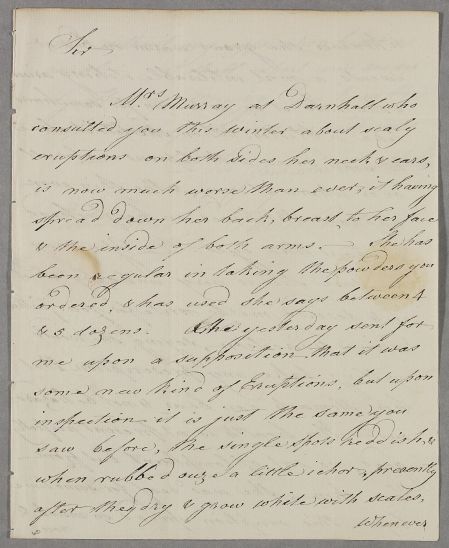 Sir
Mrs Murray at Darnhall who
consulted you this winter about scaly
eruptions on both sides her neck & ears,
is now much worse than ever, it having
spread down her back, breast to her face
& the inside of both arms. She has
been regular in taking the powders you
ordered, & has used she says between 4
& 5 dozens. She yesterday sent for
me upon a supposition that it was
some new kind of Eruptions, but upon
inspection it is just the same you
saw before, the single spots reddish, &
when rubbed ouze a little ichor, presently
after they dry & grow white with scales,
Whenever